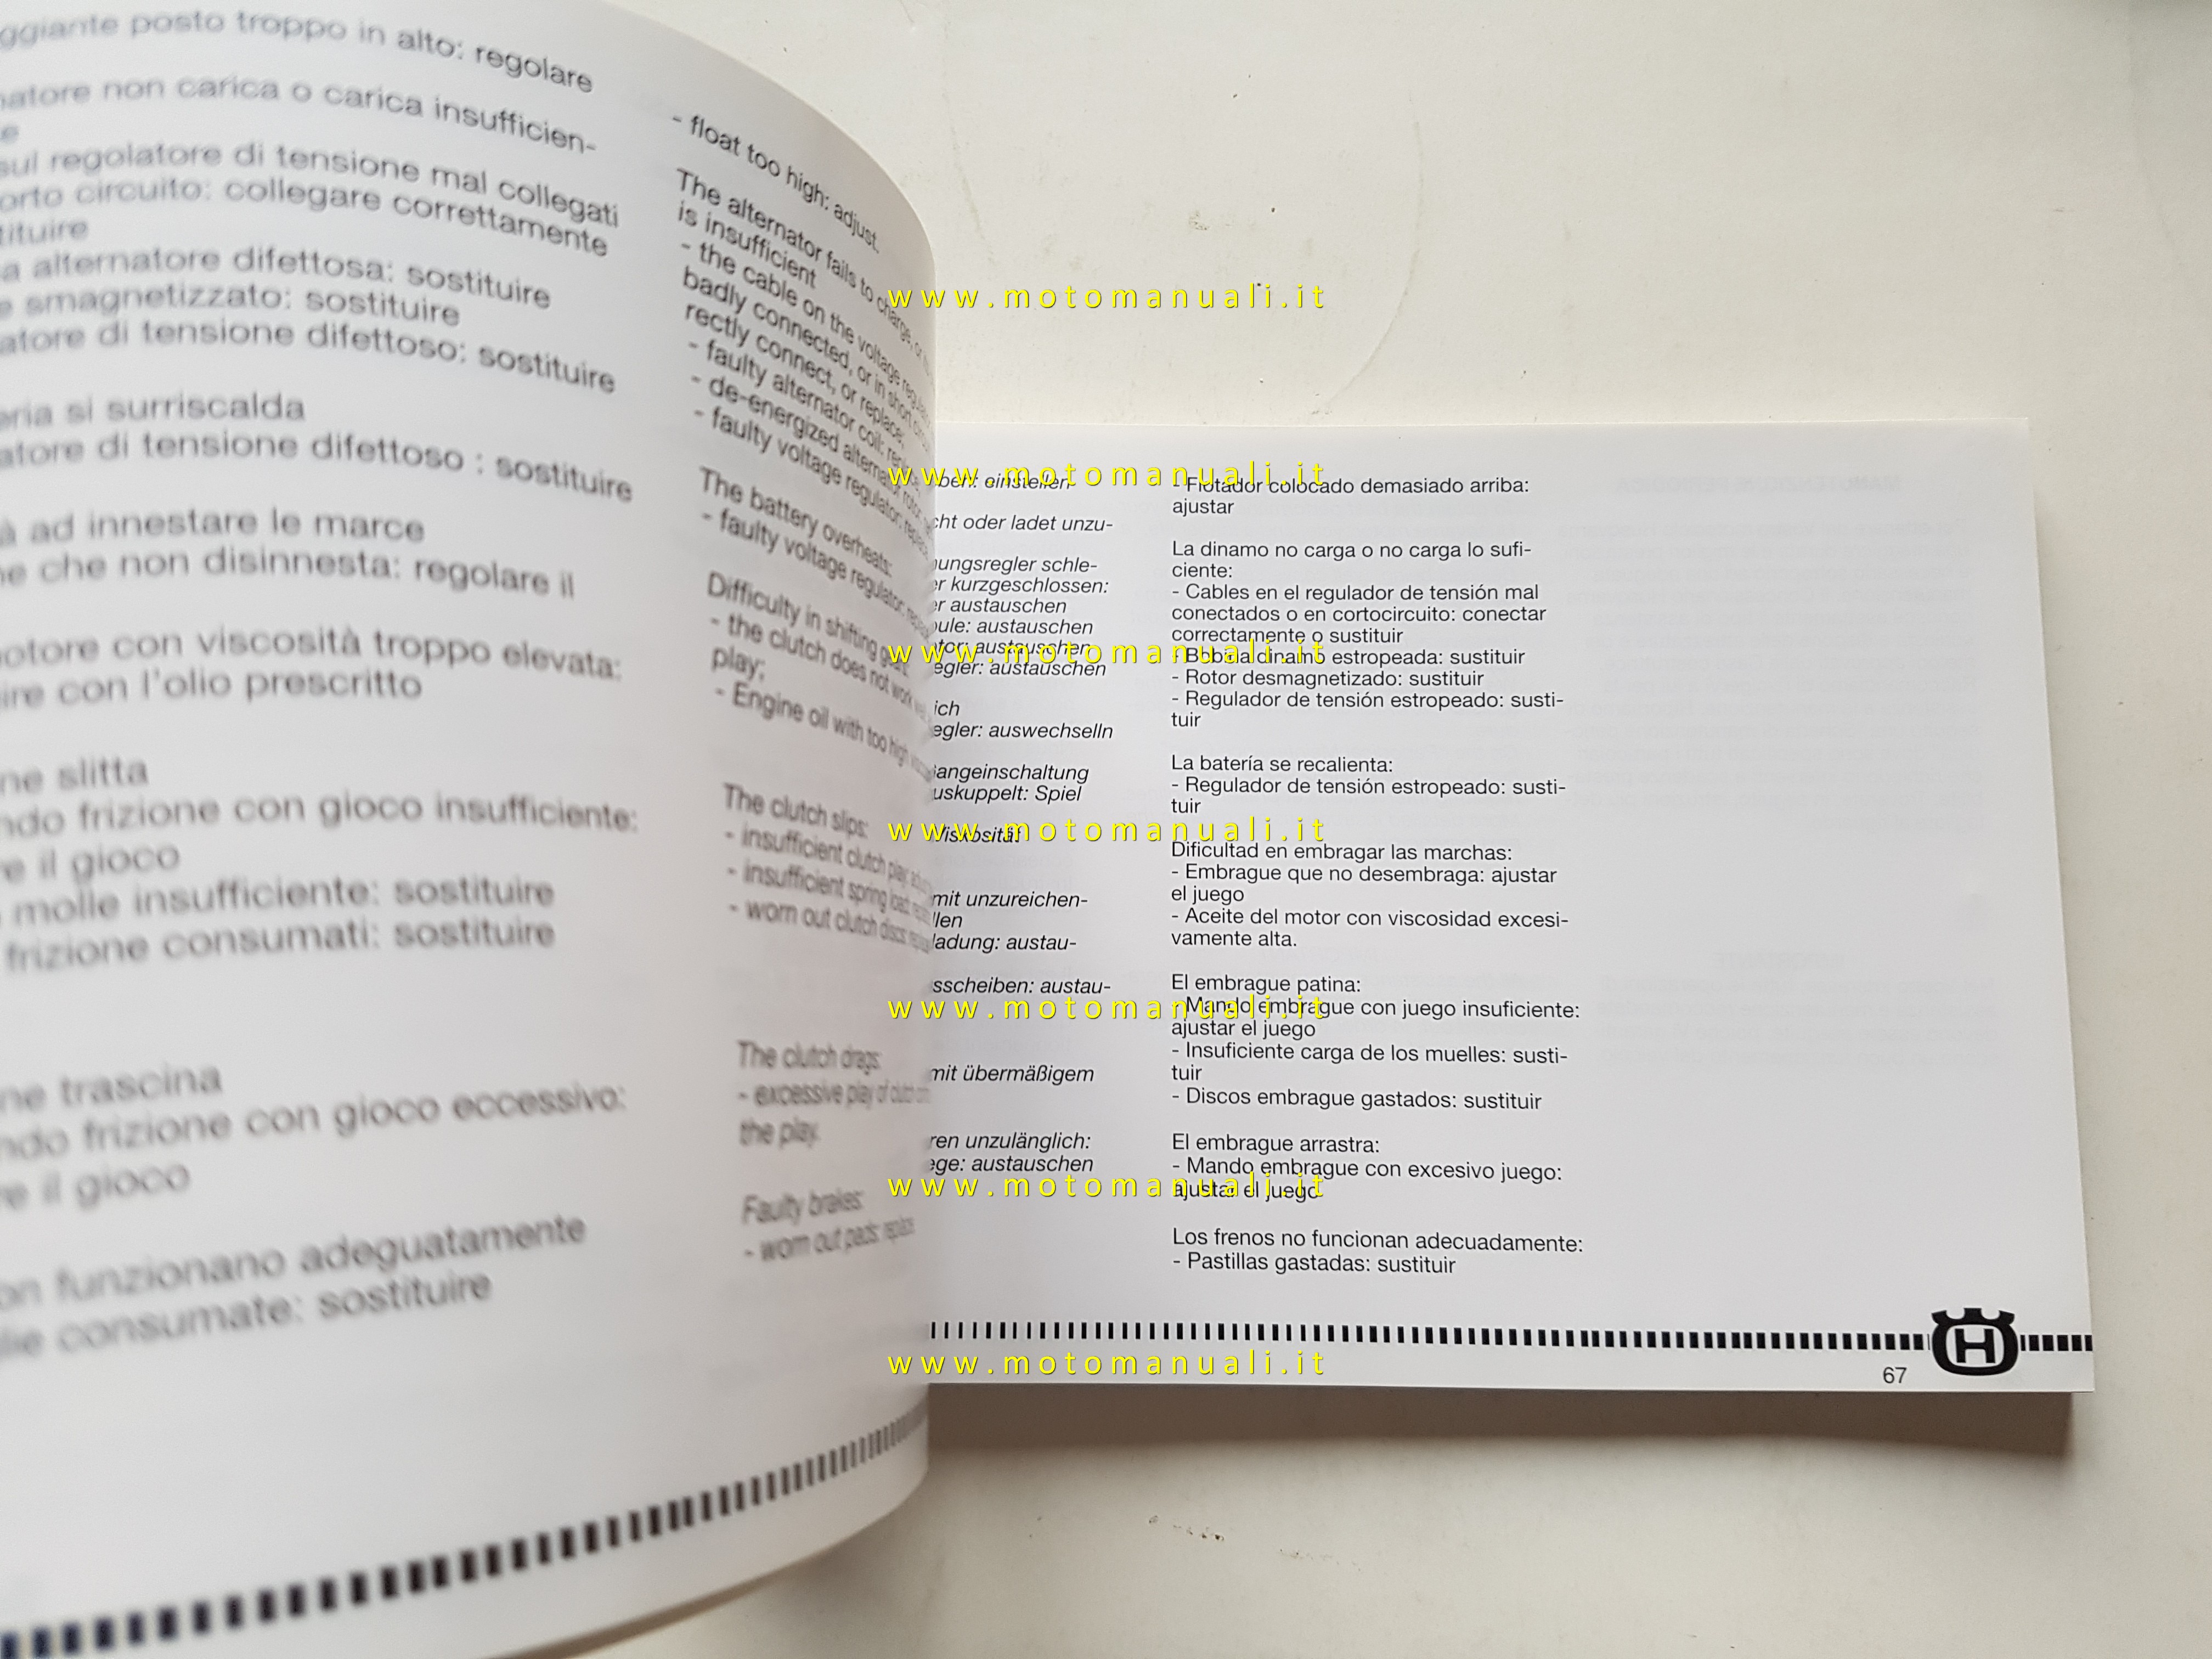 ggiante posto troppo in alto: regolare
natore non carica o carica insufficien-
e
sul regolatore di tensione mal collegati
orto circuito: collegare correttamente
tituire
a alternatore difettosa: sostituire
e smagnetizzato: sostituire
atore di tensione difettoso: sostituire
eria si surriscalda
atore di tensione difettoso : sostituire
à ad innestare le marce
ne che non disinnesta: regolare il
otore con viscosità troppo elevata:
ire con l'olio prescritto
ne slitta
ndo frizione con gioco insufficiente:
e il gioco
molle insufficiente: sostituire
frizione consumati: sostituire
ne trascina
ndo frizione con gioco eccessivo:
e il gioco
on funzionano adeguatamente
lie consumate: sostituire
- float too high: adjust.
The alternator fails to charge, or
is insufficient
- the cable on the voltage regulator
badly connected, or in short circuit
rectly connect, or replace;
- faulty alternator coil: replace
- de-energized alternator rotor:
- faulty voltage regulator: replace
The battery overheats:
- faulty voltage regulator: replace
Difficulty in shifting gears:
- the clutch does not work
play;
- Engine oil with too high
The clutch slips:
- insufficient clutch play
- insufficient spring load:
- worn out clutch discs:
The clutch drags:
- excessive play of clutch
the play.
Faulty brakes:
- worn out pads: replace
ben: einstellen
cht oder ladet unzu-
nungsregler schle-
er kurzgeschlossen:
er austauschen
pule: austauschen
otor: austauschen
egler: austauschen
ich
egler: auswechselln
angeinschaltung
uskuppelt: Spiel
Viskosität
mit unzureichen-
llen
ladung: austau-
sscheiben: austau-
mit übermäßigem
ren unzulänglich:
ege: austauschen
- Flotador colocado demasiado arriba:
ajustar
La dinamo no carga o no carga lo sufi-
ciente:
- Cables en el regulador de tensión mal
conectados o en cortocircuito: conectar
correctamente o sustituir
- Bobina dinamo estropeada: sustituir
- Rotor desmagnetizado: sustituir
- Regulador de tensión estropeado: susti-
tuir
La batería se recalienta:
- Regulador de tensión estropeado: susti-
tuir
Dificultad en embragar las marchas:
- Embrague que no desembraga: ajustar
el juego
- Aceite del motor con viscosidad excesi-
vamente alta.
El embrague patina:
- Mando embrague con juego insuficiente:
ajustar el juego
- Insuficiente carga de los muelles: susti-
tuir
- Discos embrague gastados: sustituir
El embrague arrastra:
- Mando embrague con excesivo juego:
ajustar el juego
Los frenos no funcionan adecuadamente:
- Pastillas gastadas: sustituir
67
H
www.motomanuali.it
www.motomanuali.it
www.motomanuali.it
www.motomanuali.it
www.motomanuali.it
www.motomanuali.it
www.motomanuali.it